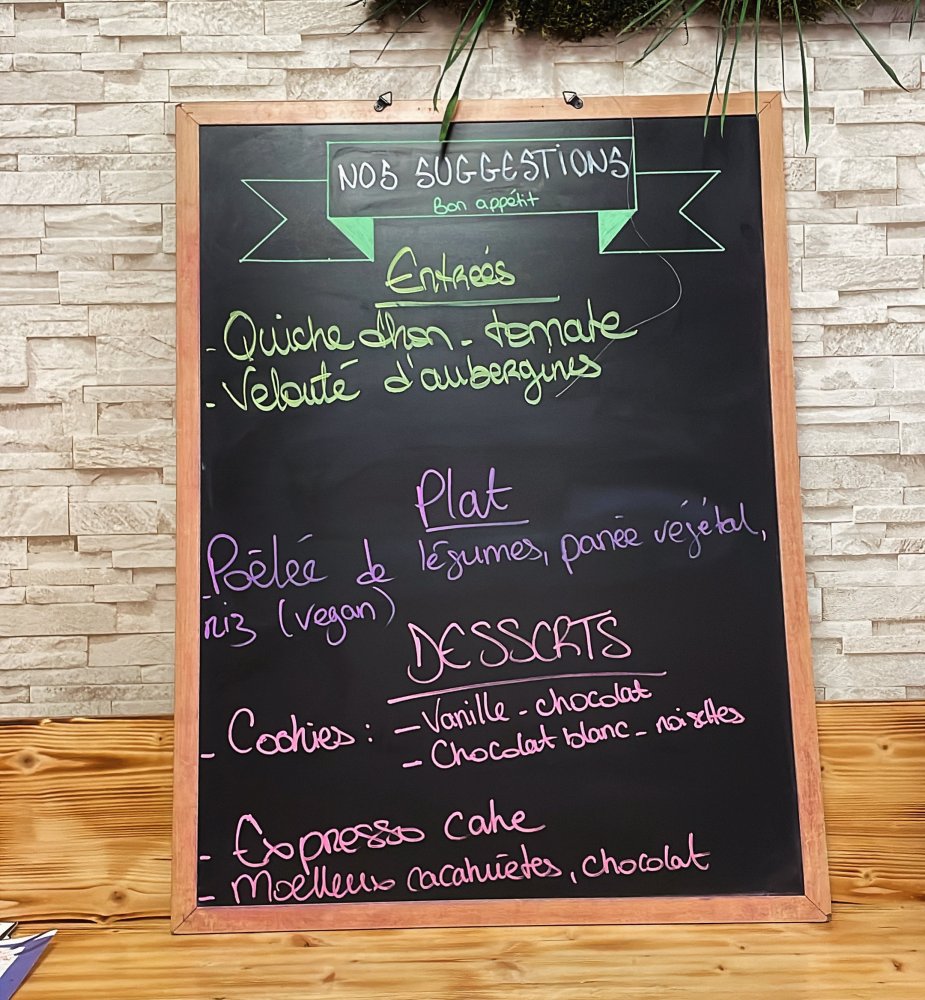 NOS SUGGESTIONS
Bon appétit
Entrées
- Quiche thon - tomate
- Velouté d'aubergines
Plat
- Poêlée de légumes, panée végétal,
riz (vegan)
DESSERTS
- Cookies : - Vanille - chocolat
- Chocolat blanc - noisettes
- Expresso cake
- Moelleux cacahuètes, chocolat